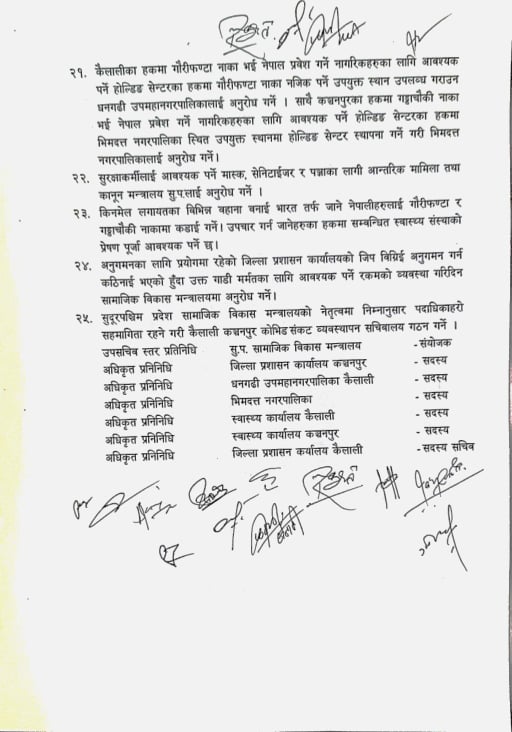 २१. कैलालीका हकमा गौरीफण्टा नाका भई नेपाल प्रवेश गर्ने नागरिकहरुका लागि आवश्यक
पर्ने होल्डिङ सेन्टरका हकमा गौरीफण्टा नाका नजिक पर्ने उपयुक्त स्थान उपलब्ध गराउन
धनगढी उपमहानगरपालिकालाई अनुरोध गर्ने । साथै कञ्चनपुरका हकमा गड्डाचौकी नाका
भई नेपाल प्रवेश गर्ने नागरिकहरुका लागि आवश्यक पर्ने होल्डिङ सेन्टरका हकमा
भिमदत्त नगरपालिका स्थित उपयुक्त स्थानमा होल्डिङ सेन्टर स्थापना गर्ने गरी भिमदत्त
नगरपालिकालाई अनुरोध गर्ने।
२२. सुरक्षाकर्मीलाई आवश्यक पर्ने मास्क, सेनिटाईजर र पञ्जाका लागी आन्तरिक मामिला तथा
कानून मन्त्रालय सु.प.लाई अनुरोध गर्ने ।
२३. किनमेल लगायतका विभिन्न वहाना बनाई भारत तर्फ जाने नेपालीहरुलाई गौरीफण्टा र
गड्डाचौकी नाकामा कडाई गर्ने। उपचार गर्न जानेहरुका हकमा सम्बन्धित स्वास्थ्य संस्थाको
प्रेषण पूर्जा आवश्यक पर्ने छ।
२४. अनुगमनका लागि प्रयोगमा रहेको जिल्ला प्रशासन कार्यालयको जिप बिग्रिई अनुगमन गर्न
कठिनाई भएको हुँदा उक्त गाडी मर्मतका लागि आवश्यक पर्ने रकमको व्यवस्था गरिदिन
सामाजिक विकास मन्त्रालयमा अनुरोध गर्ने।
२५. सुदूरपश्चिम प्रदेश सामाजिक विकास मन्त्रालयको नेतृत्वमा निम्नानुसार पदाधिकाहरो
सहमागिता रहने गरी कैलाली कञ्चनपुर कोभिड संकट व्यवस्थापन सचिबालय गठन गर्ने ।
उपसचिव स्तर प्रतिनिधि सु.प. सामाजिक विकास मन्त्रालय - संयोजक
अधिकृत प्रनिनिधि जिल्ला प्रशासन कार्यालय कञ्चनपुर - सदस्य
अधिकृत प्रनिनिधि धनगढी उपमहानगरपालिका कैलाली - सदस्य
अधिकृत प्रनिनिधि भिमदत्त नगरपालिका - सदस्य
अधिकृत प्रनिनिधि स्वास्थ्य कार्यालय कैलाली - सदस्य
अधिकृत प्रनिनिधि स्वास्थ्य कार्यालय कञ्चनपुर - सदस्य
अधिकृत प्रनिनिधि जिल्ला प्रशासन कर्यालय कैलाली - सदस्य सचिब